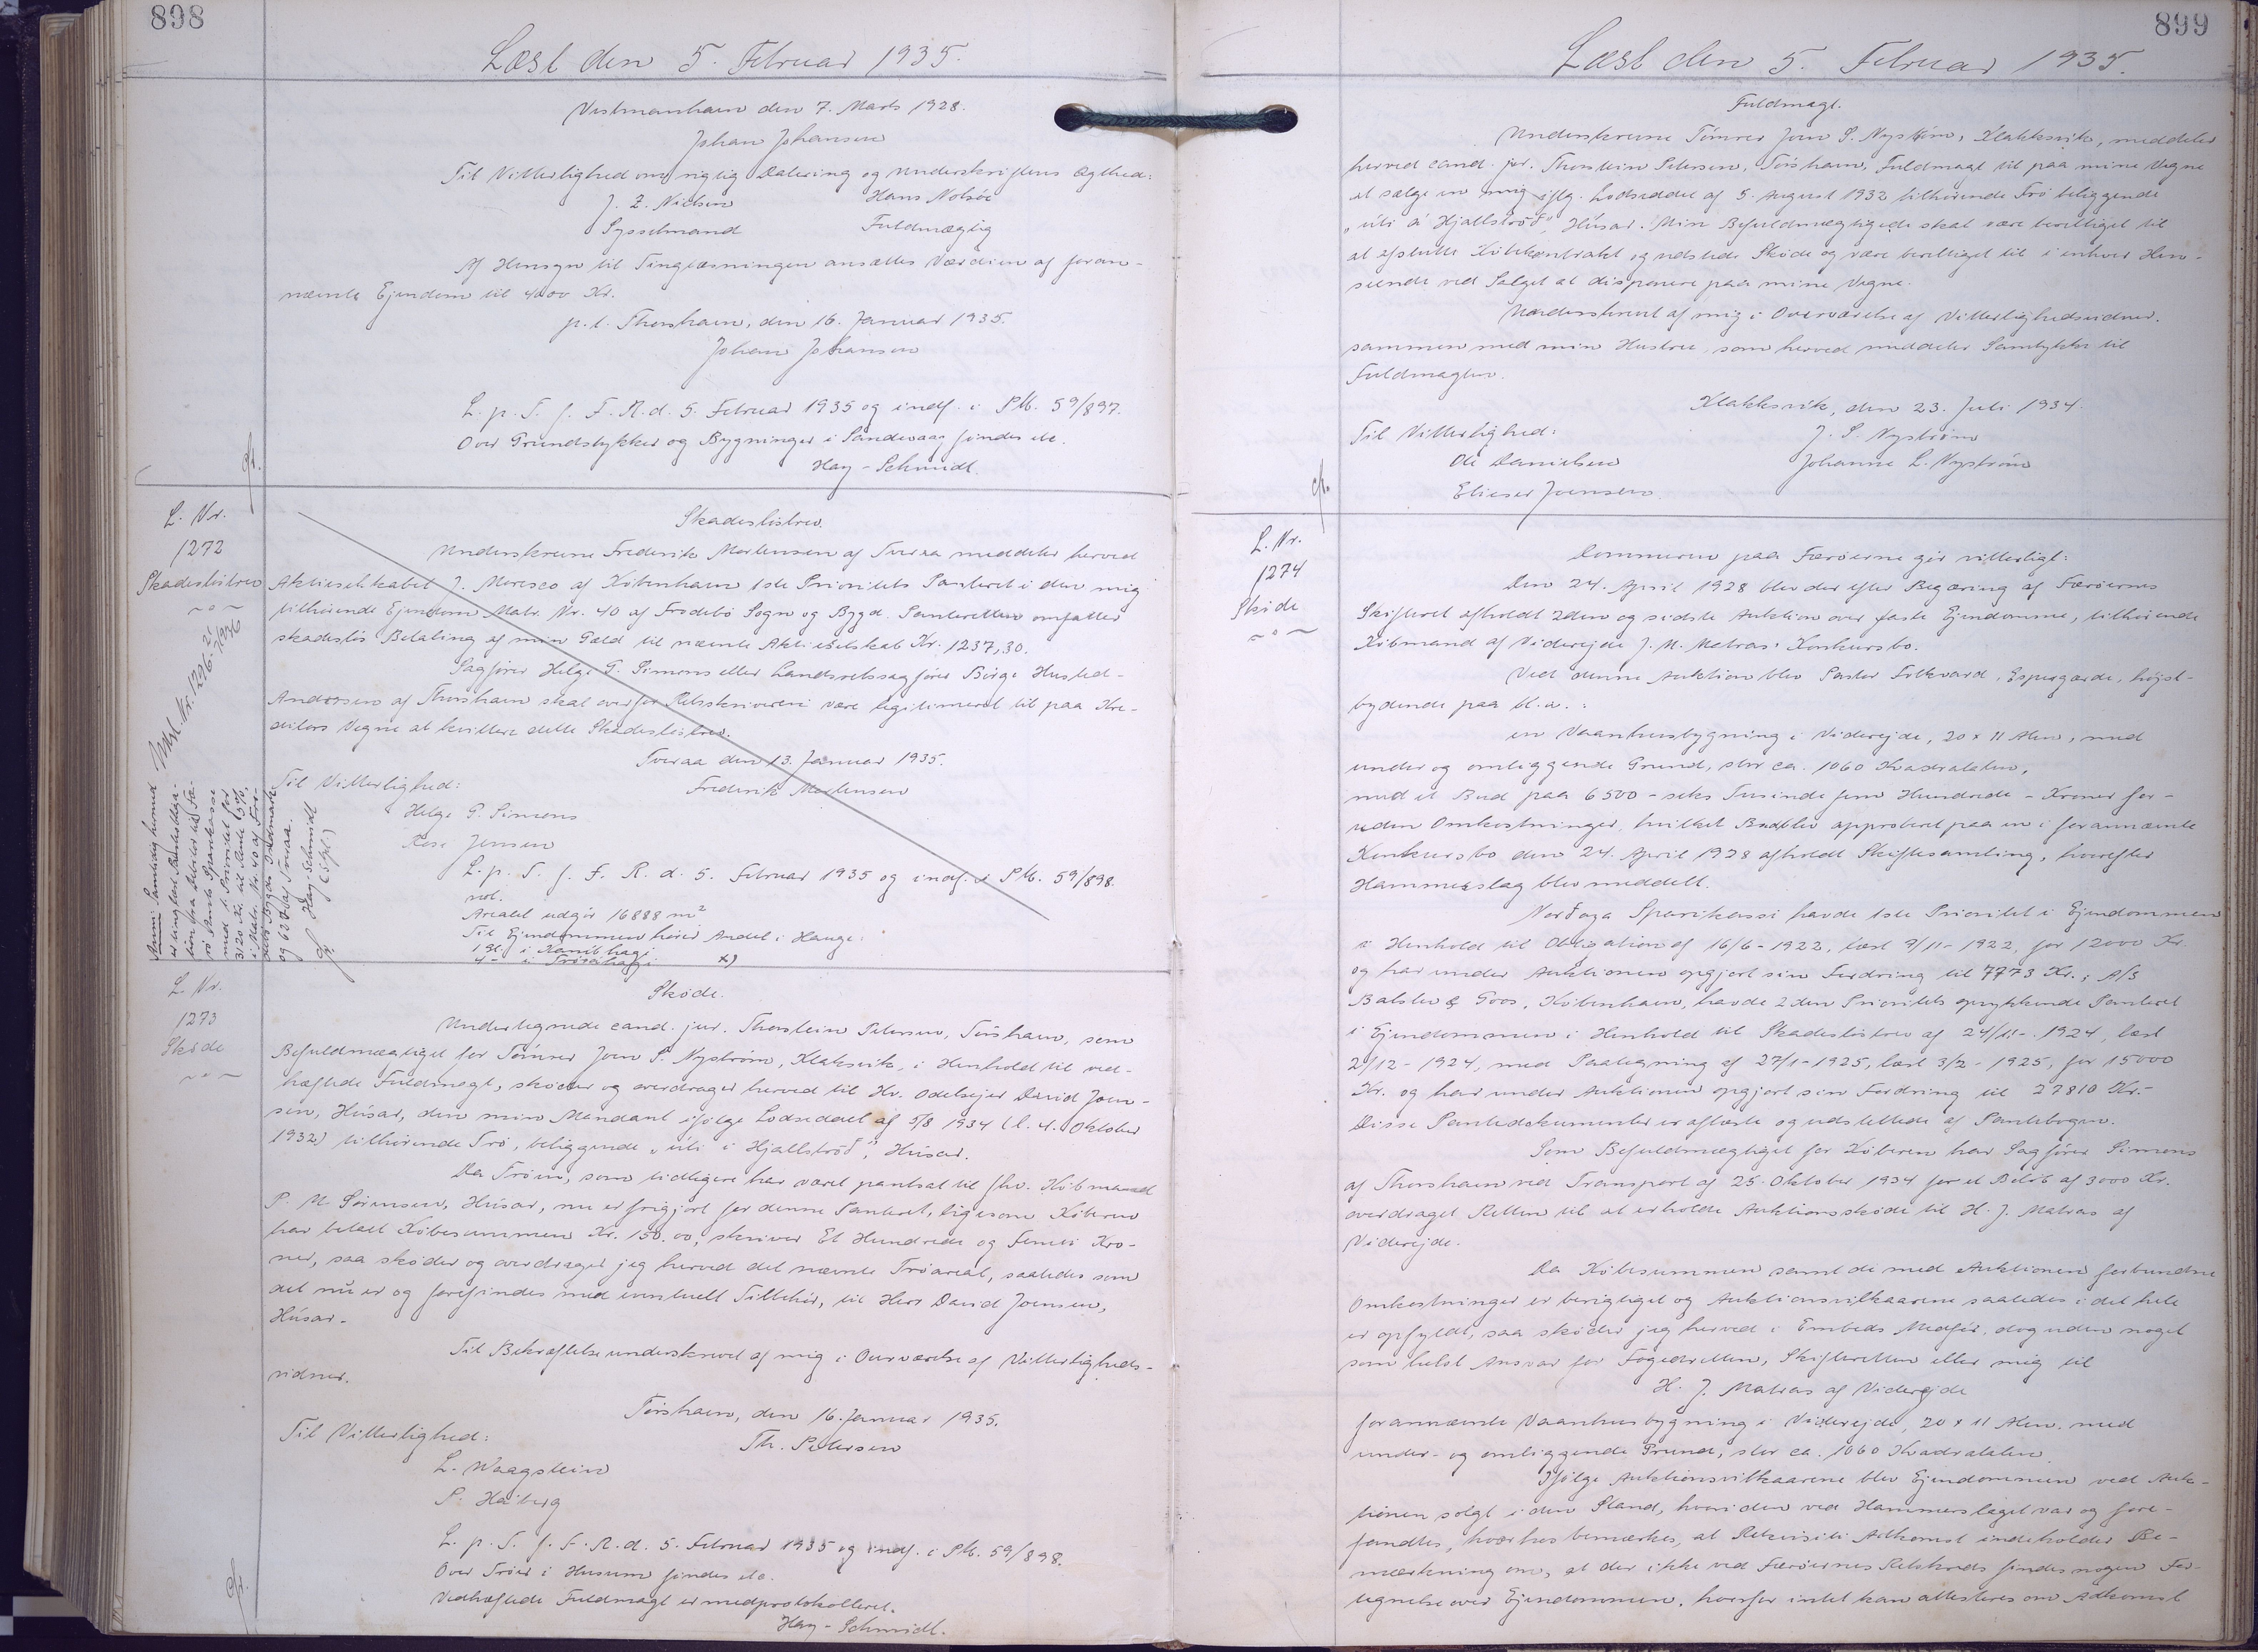 898
Læst den 5. Februar 1935.
Vestmanhavn den 7. Marts 1928.
Johan Johansen
Til Vitterlighed om rigtig Datering og Underskriftens Ægthed:
J. Z. Nielsen Hans Nolsøe
Sysselmand Fuldmægtig
Af Hensyn til Tinglæsningen ansættes Værdien af foran-
nævnte Ejendom til 4000 Kr.
p.t. Thorshavn, den 16. Januar 1935.
Johan Johansen
L. p. T. f. F. R. d. 5. Februar 1935 og indf. i PM. 59/897.
Over Grundstykker og Bygninger i Sandevaag findes etc.
Hay-Schmidt.
L. Nr.
1272
Skadesløsbrev
Udsl. Nr. 1296. 21/7 1936
Skadesløsbrev.
Underskrevne Frederik Mortensen af Tveraa meddeler herved
Aktieselskabet J. Moresco af København 1ste Prioritets Panteret i den mig
tilhørende Ejendom Matr. Nr. 40 af Frodebø Sogn og Bygd. Panteretten omfatter
skadesløs Betaling af min Gæld til nævnte Aktieselskab Kr. 1237,30.
Sagfører Helge P. Simons eller Landsretssagfører Børge Husted-
Andersen af Thorshavn skal overfor Retsskriveren være legitimeret til paa Kre-
ditors Vegne at kvittere dette Skadesløsbrev.
Tveraa den 13. Januar 1935.
Til Vitterlighed: Frederik Mortensen
Helge P. Simons
Rosa Jensen
L. p. T. f. F. R. d. 5. Februar 1935 og indf. i PM. 59/898.
not.
Arealet udgør 16888 m²
Til Ejendommen hører Andel i Hauge:
x)
Anm: Samtidig hermed
er tinglyst
tion fra til Fæ-
rø Amts Sparekasse
med 1. Prioritet for
3120 Kr. til Rente 5%,
i Matr. Nr. 40 af Fro-
debø Bygds Indmark
og af Tveraa.
Hay-Schmidt
L. Nr.
1273
Skøde
Skøde.
Undertegnede cand. jur. Thorstein Petersen, Tórshavn, som
Befuldmægtiget for Tømrer Joen P. Nystrøm, Klaksvik, i Henhold til ved-
hæftede Fuldmagt, skøder og overdrager herved til Hr. Odelsejer David Joen-
sen, Húsar, den min Mandant ifølge Lodseddel af 5/8 1934 (l. 4. Oktober
1932) tilhørende Trø, beliggende „úti í Hjallstrøð", Húsar.
Da Trøen, som tidligere har været pantsat til fhv. Købmand
P. M Sørensen, Húsar, nu er frigjort for denne Panteret, ligesom Køberen
har betalt Købesummen Kr. 150.00, skriver Et Hundrede og femti Kro-
ner, saa skøder og overdrager jeg herved det nævnte Trøareal, saaledes som
det nu er og forefindes med eventuelt Tilbehør, til Herr David Joensen,
Húsar.
Til Bekræftelse underskrevet af mig i Overværelse af Vitterligheds-
vidner.
Tórshavn, den 16. Januar 1935.
Til Vitterlighed: Th. Petersen
L. Waagstein
P. Háberg
L. p. T. f. F. R. d. 5. Februar 1935 og indf. i PM. 59/898.
Over Trøer i Husum findes etc.
Vedhæftede Fuldmagt er medprotokolleret.
Hay-Schmidt.
899
Læst den 5. Februar 1935.
Fuldmagt.
Underskrevne Tømrer Joen P. Nystrøm, Klakksvik, meddeler
herved cand. jur. Thorstein Petersen, Tórshavn, Fuldmagt til paa mine Vegne
at sælge en mig iflg. Lodseddel af 5. August 1932 tilhørende Trø beliggende
„úti á Hjallstrøð", Húsar. Min Befuldmægtigede skal være berettiget til
at afslutte Købekontrakt og udstede Skøde og være berettiget til i enhver Hen-
seende ved Salget at disponere paa mine Vegne.
Underskrevet af mig i Overværelse af Vitterlighedsvidner.
sammen med min Hustru, som herved meddeler Samtykke til
Fuldmagten.
Klakksvik, den 23. Juli 1934.
Til Vitterlighed: J. P. Nystrøm
Ole Danielsen Johanne L. Nystrøm
Elieser Joensen.
L. Nr.
1274
Skøde
Dommeren paa Færøerne gør vitterligt:
Den 24. April 1928 blev der efter Begæring af Færøernes
Skifteret afholdt 2den og sidste Auktion over faste Ejendomme, tilhørende
Købmand af Viderejde J. M. Matras' Konkursbo.
Ved denne Auktion blev Pastor Folkvard, Espergærde, højst-
bydende paa bl. a.:
en Vaanhusbygning i Viderejde, 20 x 11 Alen, med
under og omliggende Grund, stor ca. 1060 Kvadratalen,
med et Bud paa 6500 - seks Tusinde fem Hundrede - Kroner for-
uden Omkostninger, hvilket Bud blev approberet paa en i forannævnte
Konkursbo den 24. April 1928 afholdt Skiftesamling, hvorefter
Hammerslag blev meddelt.
Norðoya Sparikassi havde 1ste Prioritet i Ejendommen
i Henhold til Obligation af 16/6-1922, læst 9/11-1922, for 12000 Kr.
og har under Auktionen opgjort sin Fordring til 7773 Kr.; A/S
Balslev & Goos, København, havde 2den Prioritets oprykkende Panteret
i Ejendommen i Henhold til Skadesløsbrev af 24/11-1924, læst
2/12-1924, med Paategning af 27/1-1925, læst 3/2-1925, for 15000
Kr. og har under Auktionen opgjort sin Fordring til 27810 Kr.-
Disse Pantedokumenter er aflæste og udslettede af Pantebogen.
Som Befuldmægtiget for Køberen har Sagfører Simons
af Thorshavn ved Transport af 25. Oktober 1934 for et Beløb af 3000 Kr.
overdraget Retten til at erholde Auktionsskøde til H. J. Matras af
Viderejde.
Da Købesummen samt de med Auktionen forbundne
Omkostninger er berigtiget og Auktionsvilkaarene saaledes i det hele
er opfyldt, saa skøder jeg herved i Embeds Medfør, dog uden noget
som helst Ansvar for Fogedretten, Skifteretten eller mig til
H. J. Matras af Viderejde
forannævnte Vaanhusbygning i Viderejde, 20 x 11 Alen, med
under- og omliggende Grund, stor ca. 1060 Kvadratalen.
Ifølge Auktionsvilkaarene blev Ejendommen ved Auk-
tionen solgt i den Stand, hvori den ved Hammerslaget var og fore-
fandtes, hvorhos bemærkes, at Rekvisiti Adkomst indeholder Be-
mærkning om, at der ikke ved Færøernes Retskreds findes nogen For-
tegnelse over Ejendommen, hvorfor intet kan attesteres om Adkomst